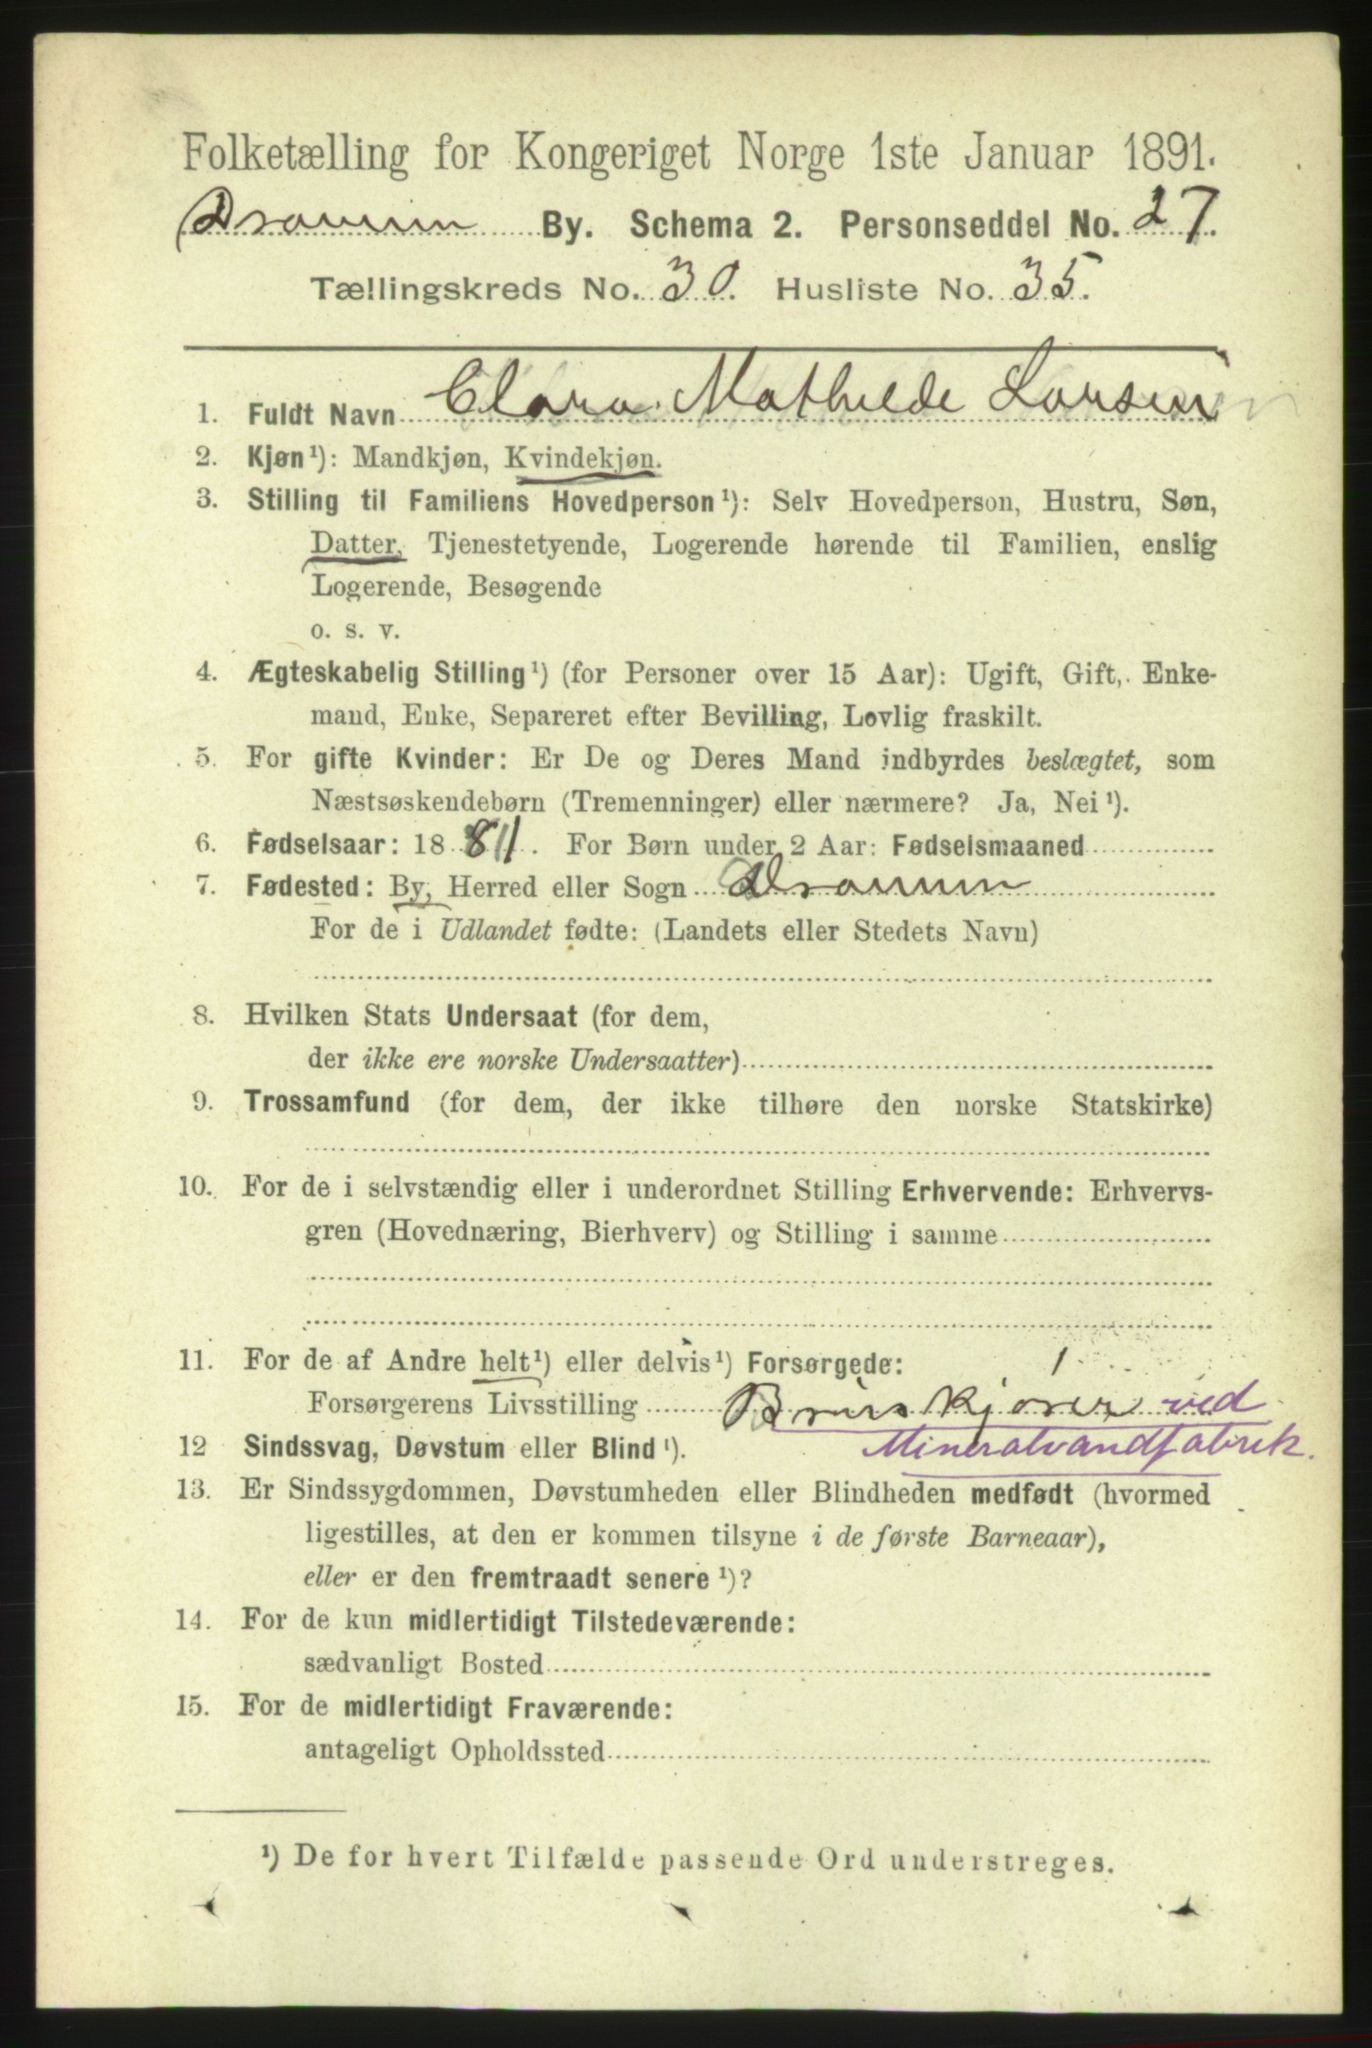 Folketælling for Kongeriget Norge 1ste Januar 1891.
Drammen By. Schema 2. Personseddel No. 27.
Tællingskreds No. 30. Husliste No. 35.
1. Fuldt Navn Clara Mathilde Larsen
2. Kjøn¹): Mandkjøn, Kvindekjøn.
3. Stilling til Familiens Hovedperson¹): Selv Hovedperson, Hustru, Søn,
Datter, Tjenestetyende, Logerende hørende til Familien, enslig
Logerende, Besøgende
o. s. v.
4. Ægteskabelig Stilling¹) (for Personer over 15 Aar): Ugift, Gift, Enke-
mand, Enke, Separeret efter Bevilling, Lovlig fraskilt.
5. For gifte Kvinder: Er De og Deres Mand indbyrdes beslægtet, som
Næstsøskendebørn (Tremenninger) eller nærmere? Ja, Nei¹).
6. Fødselsaar: 18 . For Børn under 2 Aar: Fødselsmaaned
7. Fødested: By, Herred eller Sogn Drammen
For de i Udlandet fødte: (Landets eller Stedets Navn)
8. Hvilken Stats Undersaat (for dem,
der ikke ere norske Undersaatter)
9. Trossamfund (for dem, der ikke tilhøre den norske Statskirke)
10. For de i selvstændig eller i underordnet Stilling Erhvervende: Erhvervs-
gren (Hovednæring, Bierhverv) og Stilling i samme
11. For de af Andre helt¹) eller delvis¹) Forsørgede:
Forsørgerens Livsstilling Bruskjører ved
Mineralvandfabrik.
12 Sindssvag, Døvstum eller Blind¹).
13. Er Sindssygdommen, Døvstumheden eller Blindheden medfødt (hvormed
ligestilles, at den er kommen tilsyne i de første Barneaar),
eller er den fremtraadt senere¹)?
14. For de kun midlertidigt Tilstedeværende:
sædvanligt Bosted
15. For de midlertidigt Fraværende:
antageligt Opholdssted
¹) De for hvert Tilfælde passende Ord understreges.